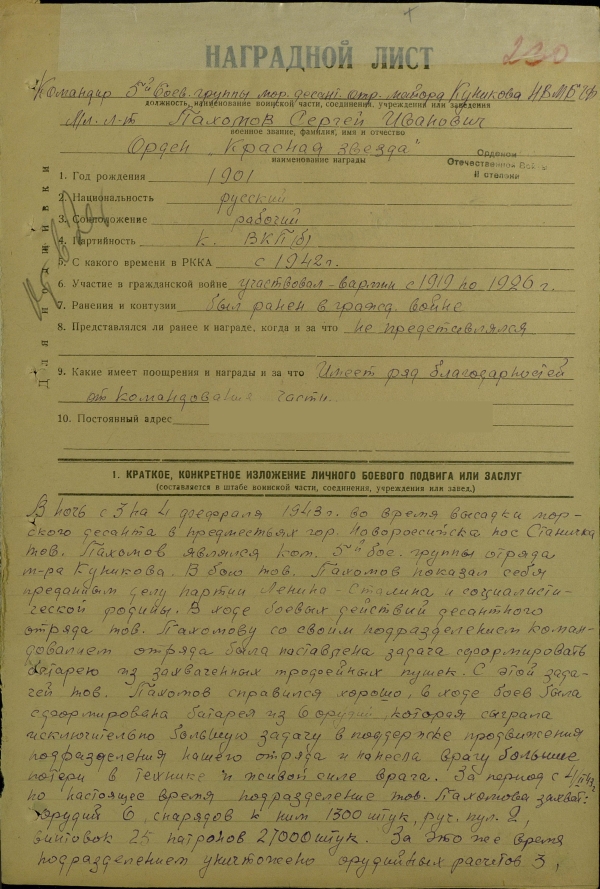 230
НАГРАДНОЙ ЛИСТ
Командир 5й боев. группы мор. десант. отр. майора Куникова НВМБ ЧФ
должность, наименование воинской части, соединения, учреждения или заведения
Мл. л-т Пахомов Сергей Иванович
военное звание, фамилия, имя и отчество
Орден „Красная звезда"
наименование награды
Орденом
Отечественной Войны
II степени
1. Год рождения 1901
2. Национальность русский
3. Соцположение рабочий
4. Партийность к. ВКП(б)
5. С какого времени в РККА с 1942 г.
6. Участие в гражданской войне участвовал - в армии с 1919 по 1926 г.
7. Ранения и контузии был ранен в гражд. войне
8. Представлялся ли ранее к награде, когда и за что не представлялся
9. Какие имеет поощрения и награды и за что Имеет ряд благодарностей
от командования части.
10. Постоянный адрес
Для подшивки
1. КРАТКОЕ, КОНКРЕТНОЕ ИЗЛОЖЕНИЕ ЛИЧНОГО БОЕВОГО ПОДВИГА ИЛИ ЗАСЛУГ
(составляется в штабе воинской части, соединения, учреждения или завед.)
В ночь с 3 на 4 февраля 1943 г. во время высадки мор-
ского десанта в предместьях гор. Новороссийска пос Станичка
тов. Пахомов являлся ком. 5й бое. группы отряда
м-ра Куникова. В бою тов. Пахомов показал себя
преданным делу партии Ленина-Сталина и социалисти-
ческой родины. В ходе боевых действий десантного
отряда тов. Пахомову со своим подразделением коман-
дованием отряда была поставлена задача сформировать
батарею из захваченных трофейных пушек. С этой зада-
чей тов. Пахомов справился хорошо, в ходе боев была
сформирована батарея из 6 орудий, которая сыграла
исключительно большую задачу в поддержке продвижения
подразделения нашего отряда и нанесла врагу большие
потери в технике и живой силе врага. За период с 4/II
по настоящее время подразделение тов. Пахомова захват:
орудий 6, снарядов к ним 1300 штук, руч. пул. 2,
винтовок 25 патронов 27000 штук. За это же время
подразделением уничтожено орудийных расчетов 3,